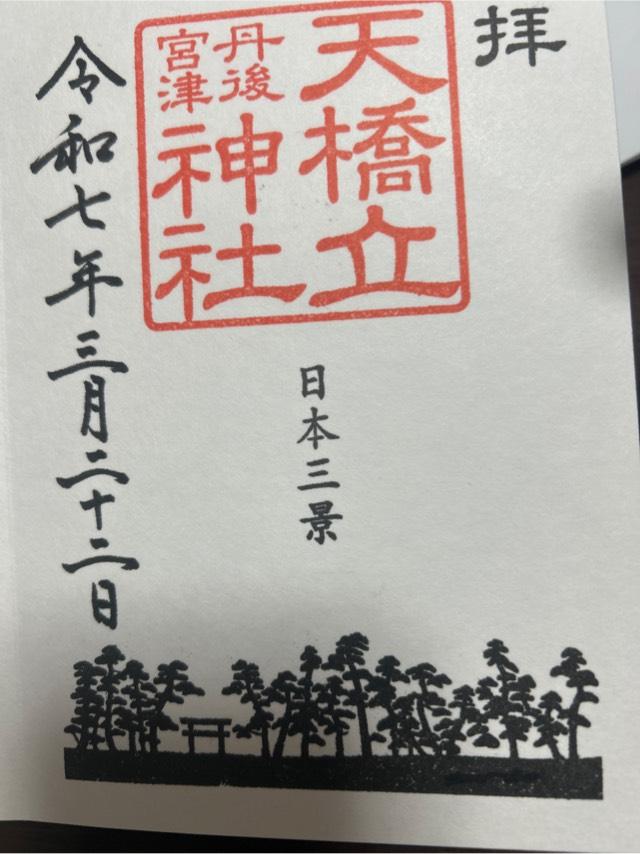 拝
天橋立
丹後
宮津
神社
日本三景
令和七年三月二十二日